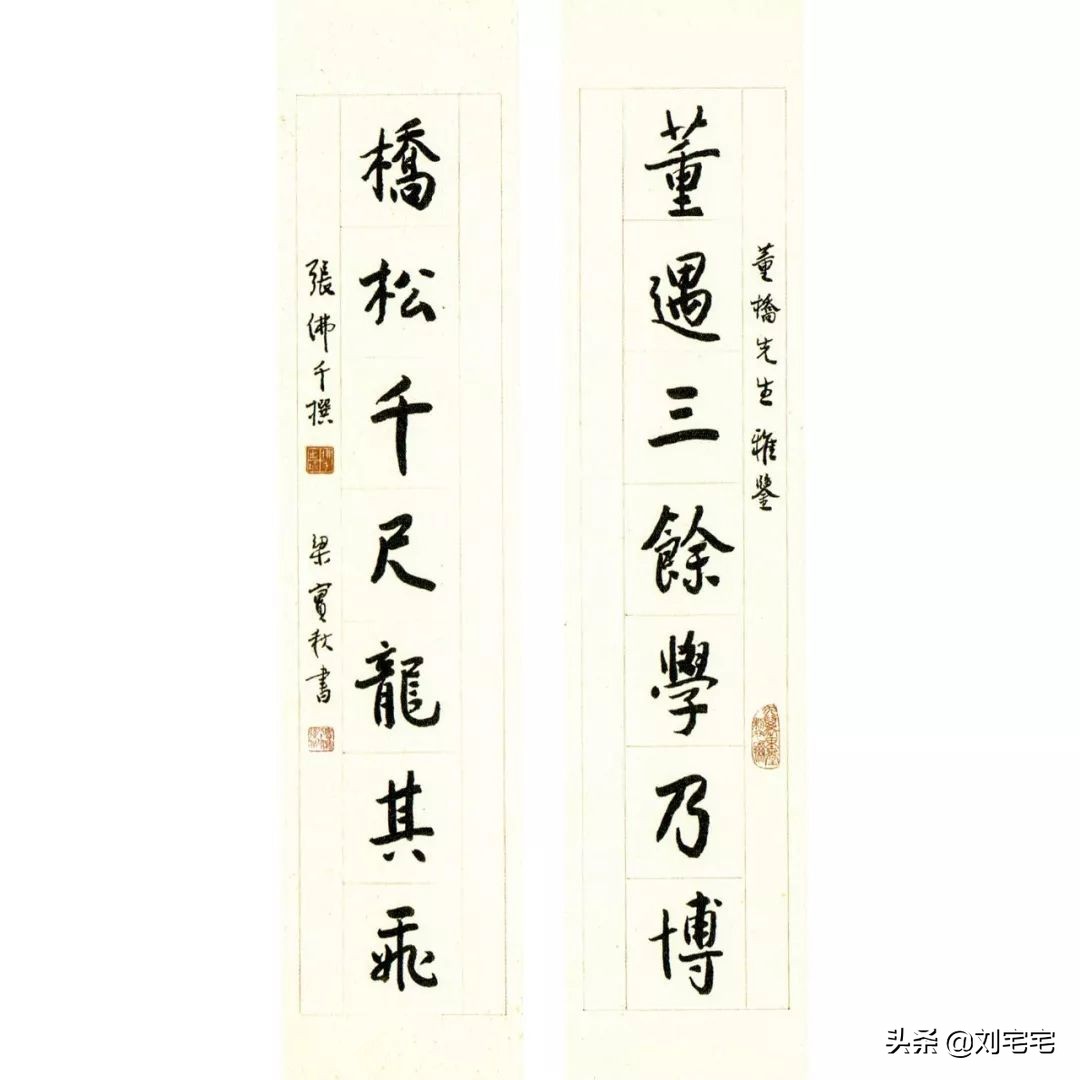 董橋先生雅鑒
董遇三餘學乃博
橋松千尺龍其飛
張佛千撰
梁實秋書
头条 @刘宅宅